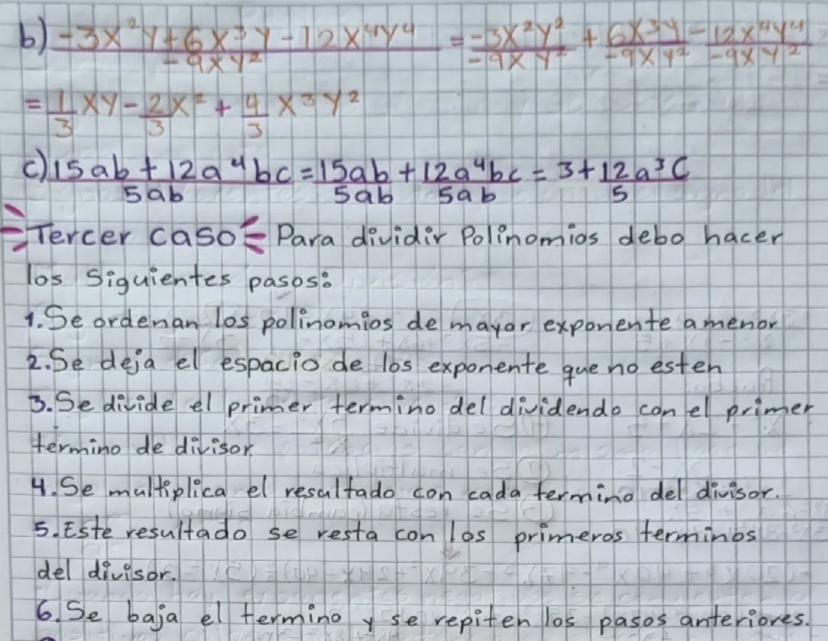 b) -3x²y+6x³y-12x⁴y⁴ / -9xy² = -3x²y² / -9xy² + 6x³y / -9xy² - 12x⁴y⁴ / -9xy²
= 1/3 xy - 2/3 x² + 4/3 x³y²
c) 15ab+12a⁴bc / 5ab = 15ab / 5ab + 12a⁴bc / 5ab = 3+12a³c / 5
Tercer caso Para dividir Polinomios debo hacer
los siguientes pasos:
1. Se ordenan los polinomios de mayor exponente a menor
2. Se deja el espacio de los exponente que no esten
3. Se divide el primer termino del dividendo con el primer
termino de divisor.
4. Se multiplica el resultado con cada termino del divisor.
5. Este resultado se resta con los primeros terminos
del divisor.
6. Se baja el termino y se repiten los pasos anteriores.